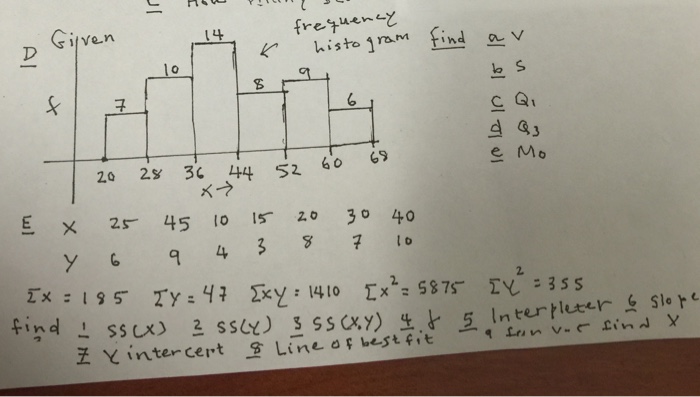 D Given frequency histogram find a V
b S
c Q1
d Q3
e Mo
f
7 10 14 8 9 6
20 28 36 44 52 60 68
X→
E X 25 45 10 15 20 30 40
Y 6 9 4 3 8 7 10
ΣX = 185 ΣY = 47 ΣXY = 1410 ΣX² = 5875 ΣY² = 355
find 1 SS(X) 2 SS(Y) 3 SS(X,Y) 4 r 5 Interpleter 6 slope
7 Y intercept 8 Line of best fit 9 find Y